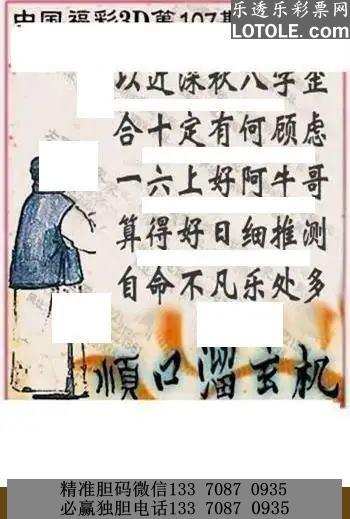 乐透乐彩票网
LOTOLE.COM
中国福彩3D第107期
以近深秋八字歪
合十定有何顾虑
一六上好阿牛哥
算得好日细推测
自命不凡乐处多
顺口溜玄机
精准胆码微信133 7087 0935
必赢独胆电话133 7087 0935